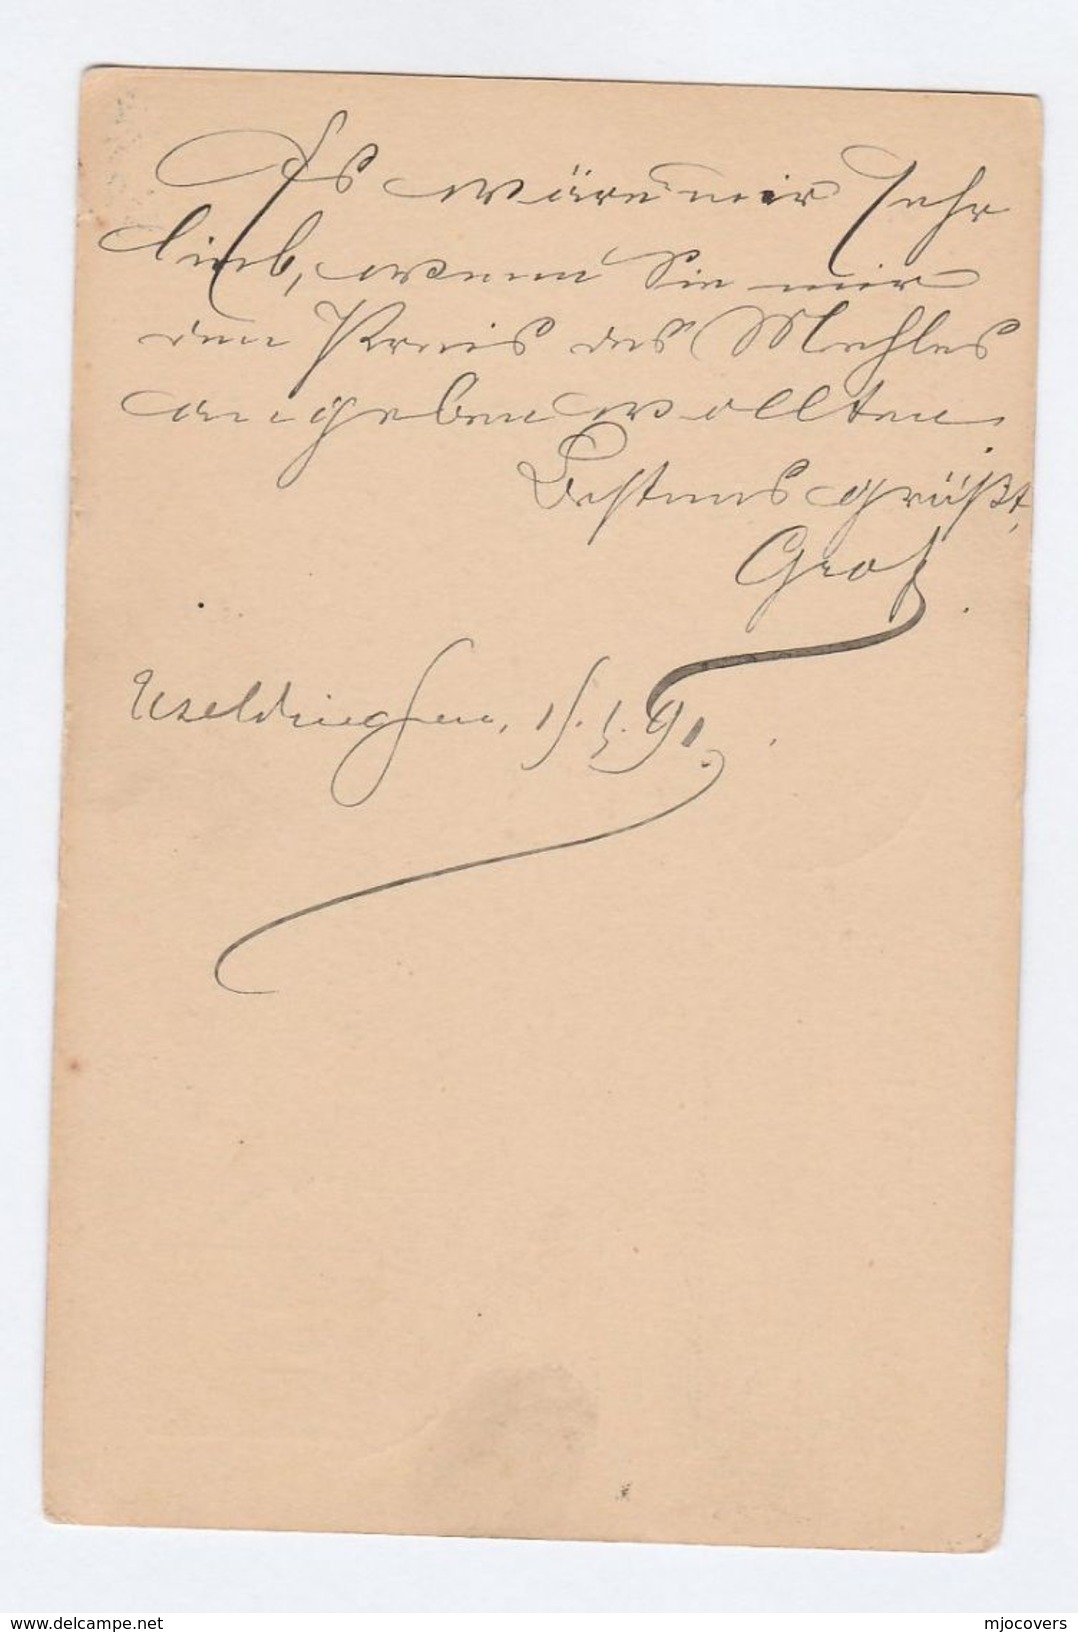 Es wäre mir sehr
lieb, wenn Sie mir
den Preis des Mehles
angeben wollten.
Bestens grüßt,
Groß
Useldingen, 1/.1.91.
www.delcampe.net
mjocovers